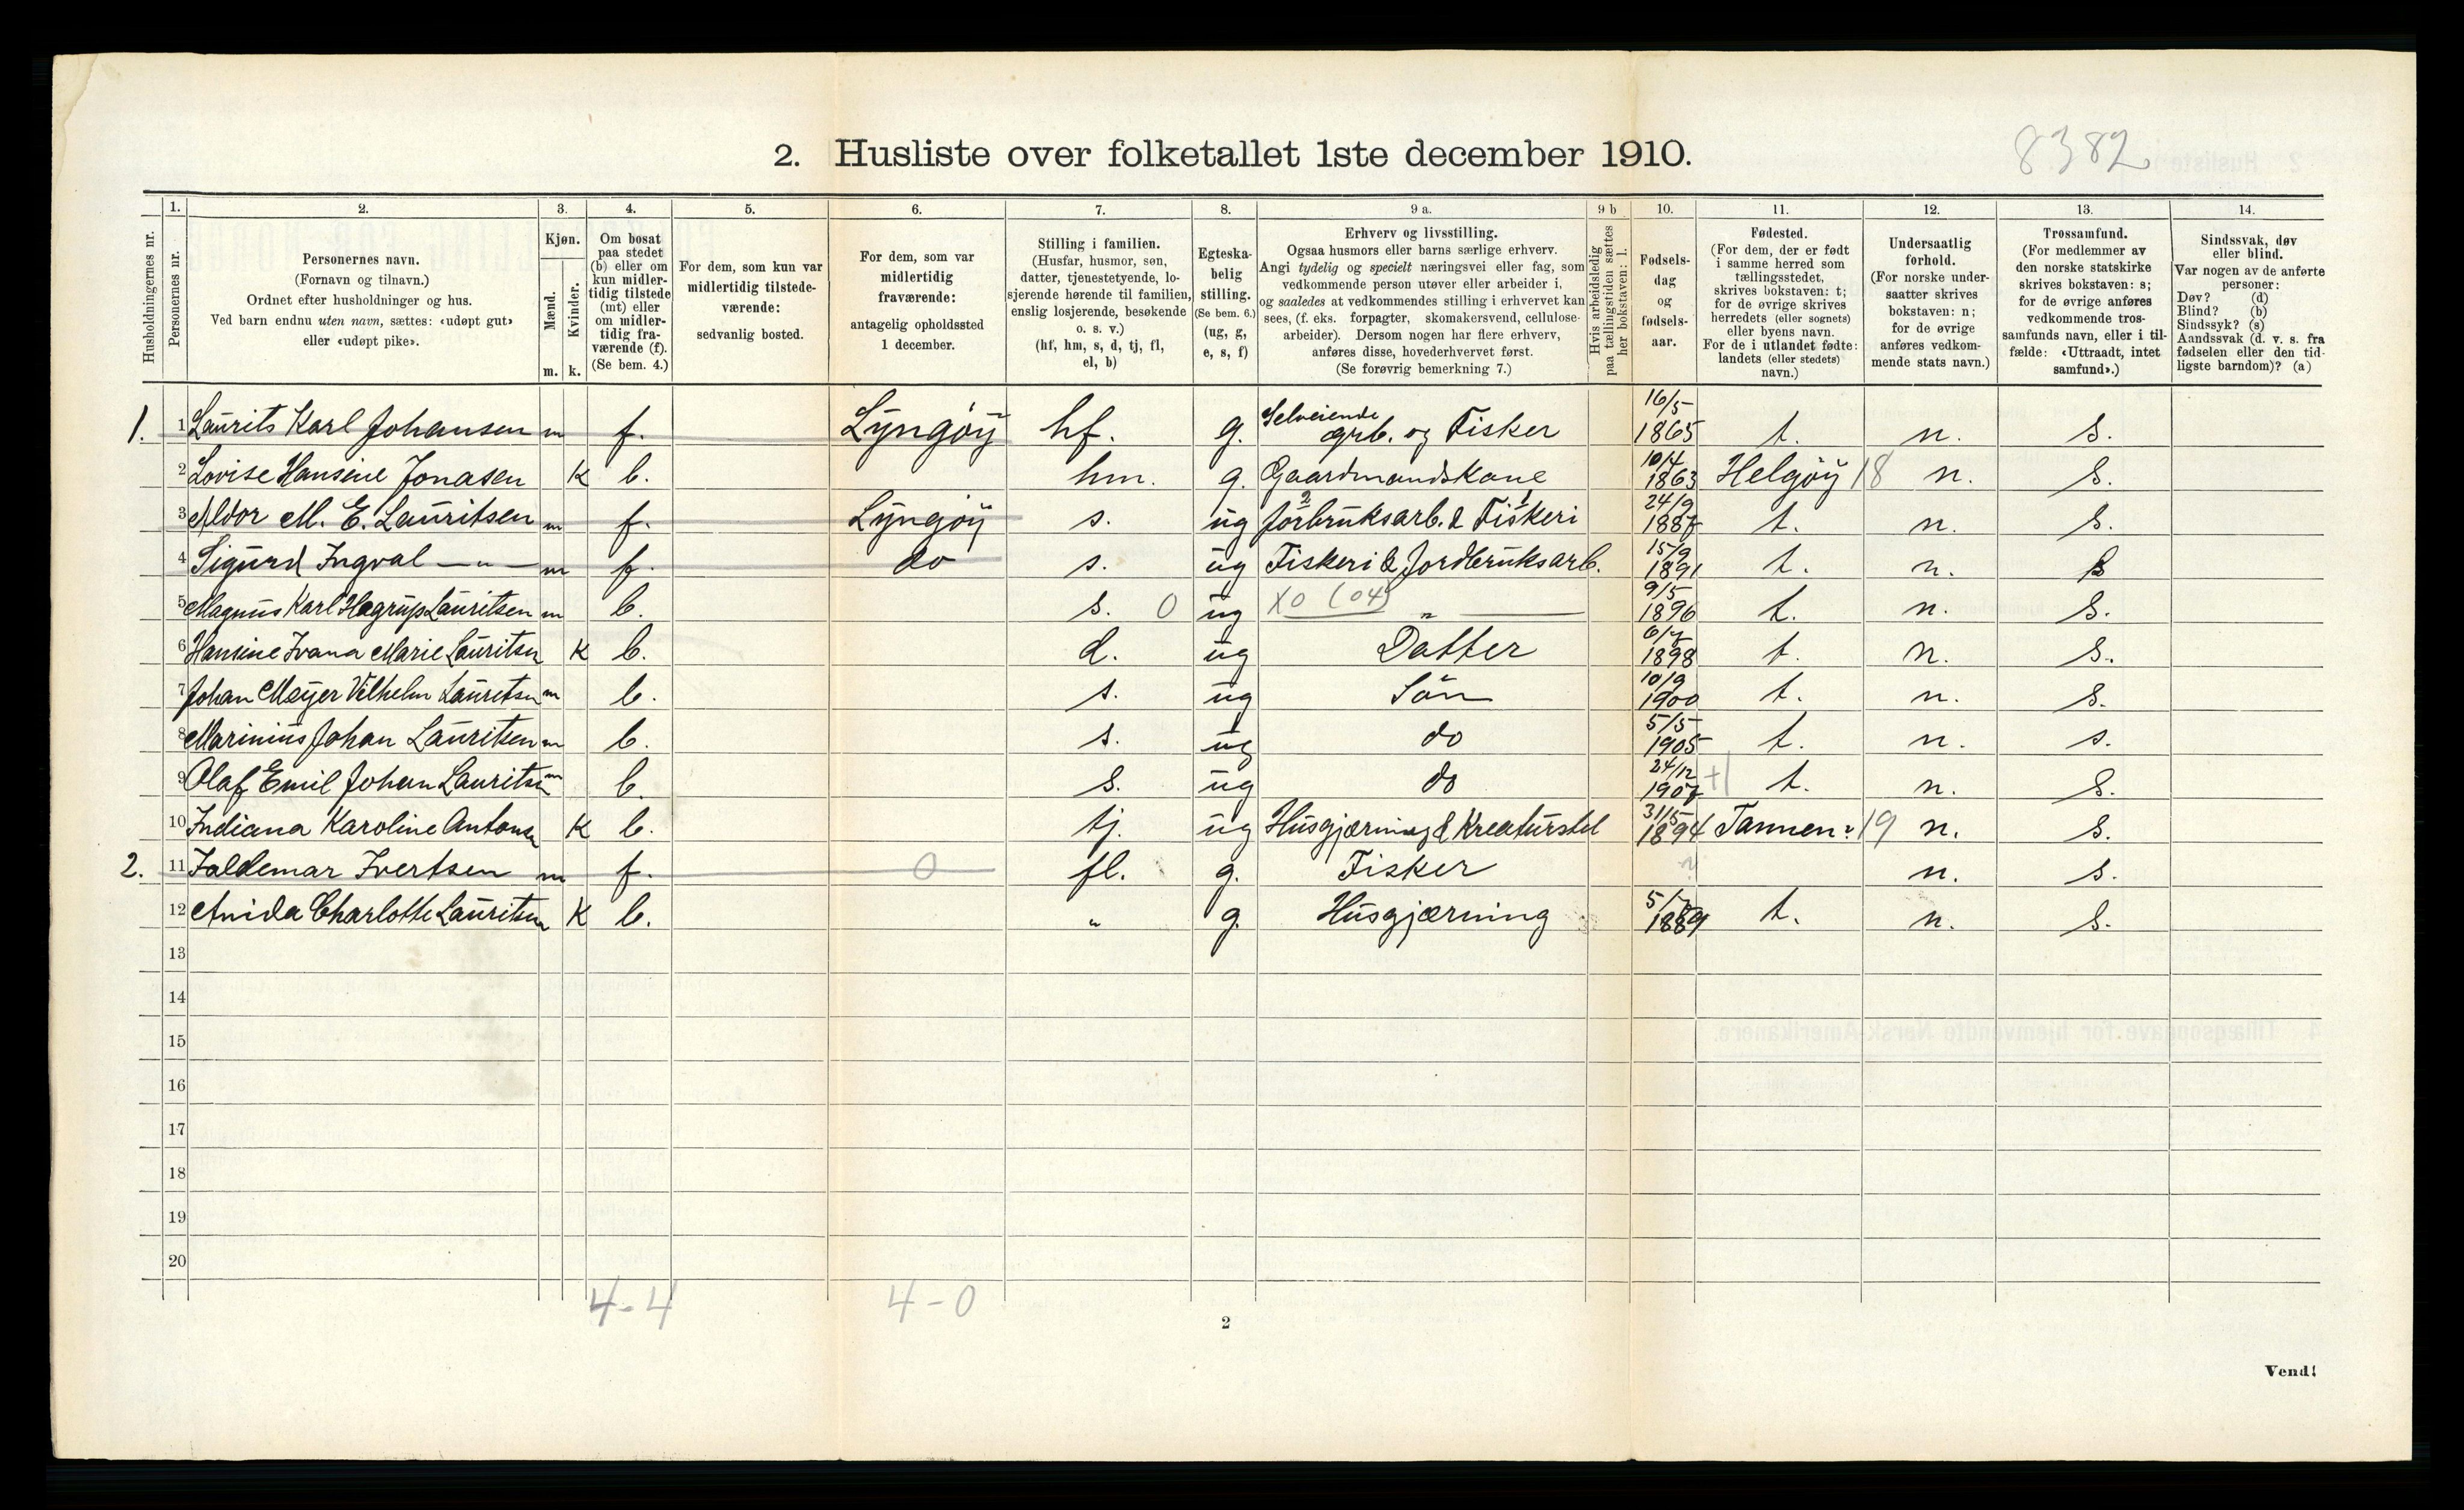 8382
2. Husliste over folketallet 1ste december 1910.
Husholdningernes nr.
1.
Personernes nr.
2.
Personernes navn.
(Fornavn og tilnavn.)
Ordnet efter husholdninger og hus.
Ved barn endnu uten navn, sættes: «udøpt gut»
eller «udøpt pike».
3.
Kjøn.
Mænd.
Kvinder.
m. k.
4.
Om bosat
paa stedet
(b) eller om
kun midler-
tidig tilstede
(mt) eller
om midler-
tidig fra-
værende (f).
(Se bem. 4.)
5.
For dem, som kun var
midlertidig tilstede-
værende:
sedvanlig bosted.
6.
For dem, som var
midlertidig
fraværende:
antagelig opholdssted
1 december.
7.
Stilling i familien.
(Husfar, husmor, søn,
datter, tjenestetyende, lo-
sjerende hørende til familien,
enslig losjerende, besøkende
o. s. v.)
(hf, hm, s, d, tj, fl,
el, b)
8.
Egteska-
belig
stilling.
(Se bem. 6.)
(ug, g,
e, s, f)
9 a.
Erhverv og livsstilling.
Ogsaa husmors eller barns særlige erhverv.
Angi tydelig og specielt næringsvei eller fag, som
vedkommende person utøver eller arbeider i,
og saaledes at vedkommendes stilling i erhvervet kan
sees, (f. eks. forpagter, skomakersvend, cellulose-
arbeider). Dersom nogen har flere erhverv,
anføres disse, hovederhvervet først.
(Se forøvrig bemerkning 7.)
9 b
Hvis arbeidsledig
paa tællingstiden sættes
her bokstaven: l.
10.
Fødsels-
dag
og
fødsels-
aar.
11.
Fødested.
(For dem, der er født
i samme herred som
tællingsstedet,
skrives bokstaven: t;
for de øvrige skrives
herredets (eller sognets)
eller byens navn.
For de i utlandet fødte:
landets (eller stedets)
navn.)
12.
Undersaatlig
forhold.
(For norske under-
saatter skrives
bokstaven: n;
for de øvrige
anføres vedkom-
mende stats navn.)
13.
Trossamfund.
(For medlemmer av
den norske statskirke
skrives bokstaven: s;
for de øvrige anføres
vedkommende tros-
samfunds navn, eller i til-
fælde: «Uttraadt, intet
samfund».)
14.
Sindssvak, døv
eller blind.
Var nogen av de anførte
personer:
Døv? (d)
Blind? (b)
Sindssyk? (s)
Aandssvak (d. v. s. fra
fødselen eller den tid-
ligste barndom)? (a)
1. 1 Laurits Karl Johansen m f. Lyngöy hf. g. Selveiende grb. og Fisker 16/5 1865 t. n. s.
2 Lovise Hansine Jonasen K b. hm. g. Gaardmandskone 1863 Helgöy 18 n. s.
3 Aldor M. E. Lauritsen m f. Lyngöy s. ug 2 1 jorbruksarb. & Fiskeri 24/9 1887 t. n. s.
4 Sigurd Ingval —"— m f. do s. ug Fiskeri & Jordbruksarb. 15/9 1891 t. n. s
5 Magnus Karl Hagrup Lauritsen m b. s. 0 ug X0 (04) " 9/5 1896 t. n. s.
6 Hansine Ivana Marie Lauritsen K b. d. ug Datter 6/7 1898 t. n. s.
7 Johan Meyer Vilhelm Lauritsen m b. s. ug Sön 10/9 1900 t. n. s.
8 Marinius Johan Lauritsen m b. s. ug do 5/5 1905 t. n. s.
9 Olaf Emil Johan Lauritsen m b. s. ug do 24/12 1907 +1 t. n. s.
10 Indiana Karoline Antons K b. tj. ug Husgjærning & Kreaturstel 31/5 1894 19 n. s.
2. 11 Ialdemar Ivertsen m f. 0 fl. g. Fisker ? n. s.
12 Anida Charlotte Lauritsen K b. " g. Husgjærning 1889 t. n. s.
13
14
15
16
17
18
19
20
4-4 4-0
2
Vend!